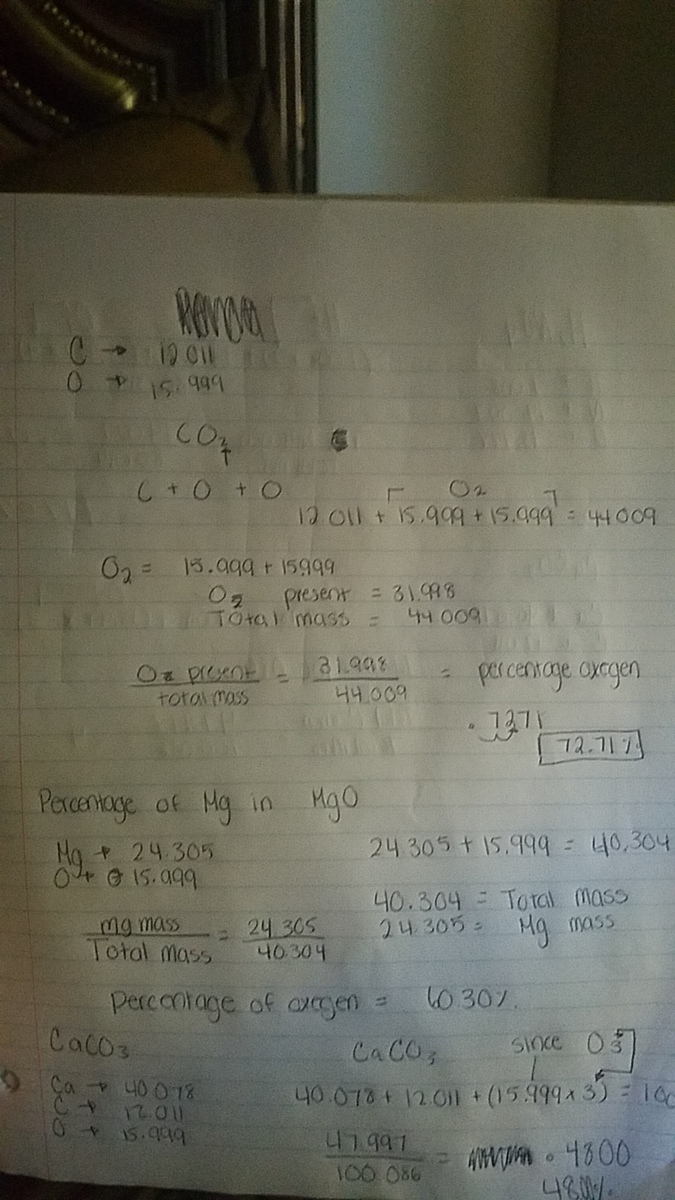 C → 12.011
O → 15.999
CO2
C + O + O
O2
12.011 + 15.999 + 15.999 = 44.009
O2 = 15.999 + 15.999
O2 present = 31.998
Total mass = 44.009
O2 present / total mass = 31.998 / 44.009 = percentage oxegen
.7271
72.71%
Percentage of Mg in MgO
Mg → 24.305
O → 15.999
24.305 + 15.999 = 40.304
40.304 = Total mass
24.305 = Mg mass
mg mass / Total mass = 24.305 / 40.304
Percentage of oxegen = 60.30%.
CaCO3
CaCO3
since O3
Ca → 40.078
C → 12.011
O → 15.999
40.078 + 12.011 + (15.999 x 3) = 100
47.997 / 100.086 = .4800